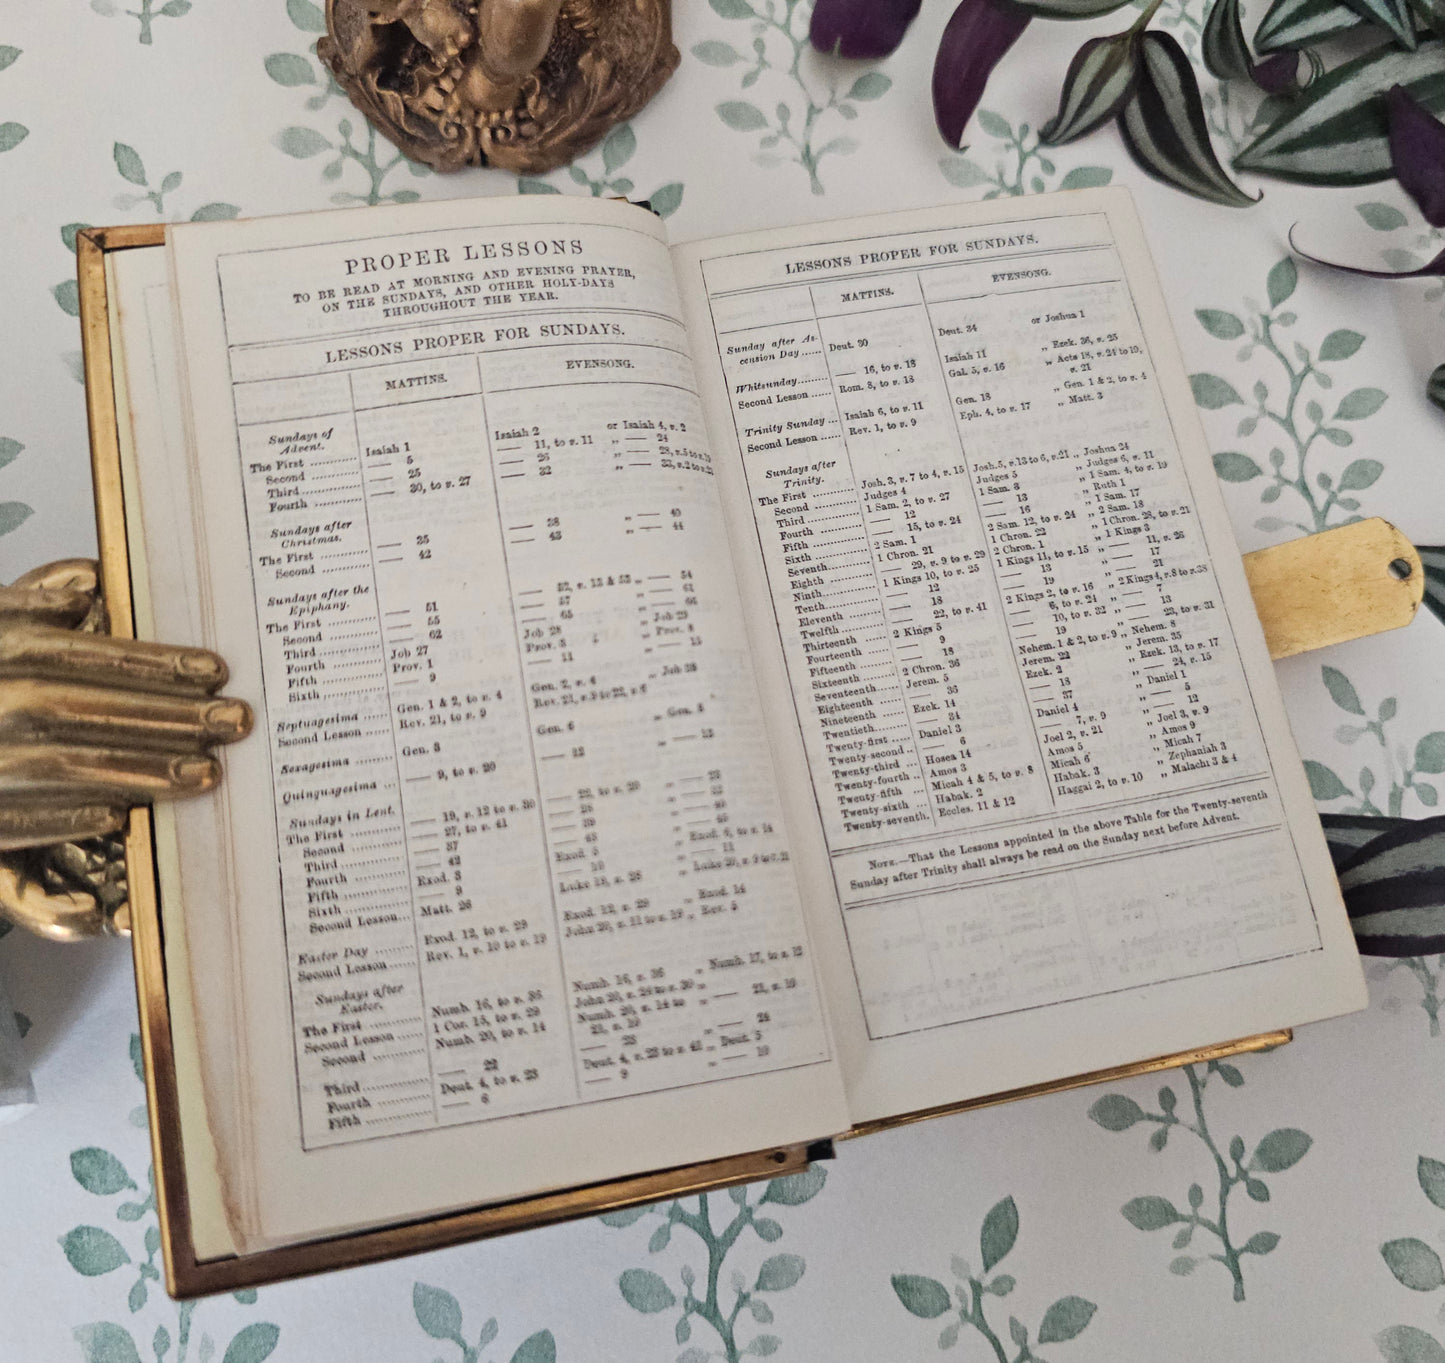 PROPER LESSONS
TO BE READ AT MORNING AND EVENING PRAYER,
ON THE SUNDAYS, AND OTHER HOLY-DAYS
THROUGHOUT THE YEAR.
LESSONS PROPER FOR SUNDAYS.
MATTINS. EVENSONG.
Sundays of
Advent.
The First ............ Isaiah 1 Isaiah 2 or Isaiah 4, v. 2
Second ............ —— 5 —— 11, to v. 11 „ —— 24
Third ............ —— 25 —— 26 „ —— 28, v. 5 to v. 19
Fourth ............ —— 30, to v. 27 —— 32 „ —— 33, v. 2 to v. 23
Sundays after
Christmas.
The First ............ —— 35 —— 38 „ —— 40
Second ............ —— 42 —— 43 „ —— 44
Sundays after the
Epiphany.
The First ............ —— 51 —— 52, v. 13 & 53 „ —— 54
Second ............ —— 55 —— 57 „ —— 61
Third ............ —— 62 —— 65 „ —— 66
Fourth ............ Job 27 Job 28 „ Job 29
Fifth ............ Prov. 1 Prov. 3 „ Prov. 8
Sixth ............ —— 9 —— 11 „ —— 15
Septuagesima ...... Gen. 1 & 2, to v. 4 Gen. 2, v. 4 „ Job 38
Second Lesson ...... Rev. 21, to v. 9 Rev. 21, v. 9 to 22, v. 6
Sexagesima ...... Gen. 3 Gen. 6 „ Gen. 8
Quinquagesima ... —— 9, to v. 20 —— 12 „ —— 13
Sundays in Lent.
The First ............ —— 19, v. 12 to v. 30 —— 22, to v. 20 „ —— 23
Second ............ —— 27, to v. 41 —— 28 „ —— 32
Third ............ —— 37 —— 39 „ —— 40
Fourth ............ —— 42 —— 43 „ —— 45
Fifth ............ Exod. 3 Exod. 5 „ Exod. 6, to v. 14
Sixth ............ —— 9 —— 10 „ —— 11
Second Lesson... Matt. 26 Luke 19, v. 28 „ Luke 20, v. 9 to v. 21
Easter Day ......... Exod. 12, to v. 29 Exod. 12, v. 29 „ Exod. 14
Second Lesson ...... Rev. 1, v. 10 to v. 19 John 20, v. 11 to v. 19 „ Rev. 5
Sundays after
Easter.
The First ............ Numb. 16, to v. 36 Numb. 16, v. 36 „ Numb. 17, to v. 12
Second Lesson ...... 1 Cor. 15, to v. 29 John 20, v. 24 to v. 30 „
Second ............ Numb. 20, to v. 14 Numb. 20, v. 14 to „ —— 21, v. 10
21, v. 10
Third ............ —— 22 —— 23 „ —— 24
Fourth ............ Deut. 4, to v. 23 Deut. 4, v. 23 to v. 41 „ Deut. 5
Fifth ............ —— 6 —— 9 „ —— 10
LESSONS PROPER FOR SUNDAYS.
MATTINS. EVENSONG.
Sunday after As-
cension Day ...... Deut. 30 Deut. 34 or Joshua 1
Whitsunday ......... —— 16, to v. 18 Isaiah 11 „ Ezek. 36, v. 25
Second Lesson ...... Rom. 8, to v. 18 Gal. 5, v. 16 „ Acts 18, v. 24 to 19,
v. 21
Trinity Sunday ... Isaiah 6, to v. 11 Gen. 18 „ Gen. 1 & 2, to v. 4
Second Lesson ...... Rev. 1, to v. 9 Eph. 4, to v. 17 „ Matt. 3
Sundays after
Trinity.
The First ............ Josh. 3, v. 7 to 4, v. 15 Josh. 5, v. 13 to 6, v. 21 „ Joshua 24
Second ............ Judges 4 Judges 5 „ Judges 6, v. 11
Third ............ 1 Sam. 2, to v. 27 1 Sam. 3 „ 1 Sam. 4, to v. 19
Fourth ............ —— 12 —— 13 „ Ruth 1
Fifth ............ —— 15, to v. 24 —— 16 „ 1 Sam. 17
Sixth ............ 2 Sam. 1 2 Sam. 12, to v. 24 „ 2 Sam. 18
Seventh ............ 1 Chron. 21 1 Chron. 22 „ 1 Chron. 28, to v. 21
Eighth ............ —— 29, v. 9 to v. 29 2 Chron. 1 „ 1 Kings 3
Ninth ............ 1 Kings 10, to v. 25 1 Kings 11, to v. 15 „ —— 11, v. 26
Tenth ............ —— 12 —— 13 „ —— 17
Eleventh ............ —— 18 —— 19 „ —— 21
Twelfth ............ —— 22, to v. 41 2 Kings 2, to v. 16 „ 2 Kings 4, v. 8 to v. 38
Thirteenth ......... 2 Kings 5 —— 6, to v. 24 „ —— 7
Fourteenth ......... —— 9 —— 10, to v. 32 „ —— 13
Fifteenth ......... —— 18 —— 19 „ —— 23, to v. 31
Sixteenth ......... 2 Chron. 36 Nehem. 1 & 2, to v. 9 „ Nehem. 8
Seventeenth ......... Jerem. 5 Jerem. 22 „ Jerem. 35
Eighteenth ......... —— 36 Ezek. 2 „ Ezek. 13, to v. 17
Nineteenth ......... Ezek. 14 —— 18 „ —— 24, v. 15
Twentieth ......... —— 34 —— 37 „ Daniel 1
Twenty-first ...... Daniel 3 Daniel 4 „ —— 5
Twenty-second .. —— 6 —— 7, v. 9 „ —— 12
Twenty-third ... Hosea 14 Joel 2, v. 21 „ Joel 3, v. 9
Twenty-fourth .. Amos 3 Amos 5 „ Amos 9
Twenty-fifth ...... Micah 4 & 5, to v. 8 Micah 6 „ Micah 7
Twenty-sixth ...... Habak. 2 Habak. 3 „ Zephaniah 3
Twenty-seventh. Eccles. 11 & 12 Haggai 2, to v. 10 „ Malachi 3 & 4
NOTE.—That the Lessons appointed in the above Table for the Twenty-seventh
Sunday after Trinity shall always be read on the Sunday next before Advent.